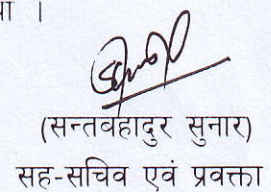 ।
(सन्तवहादुर सुनार)
सह-सचिव एवं प्रवक्ता